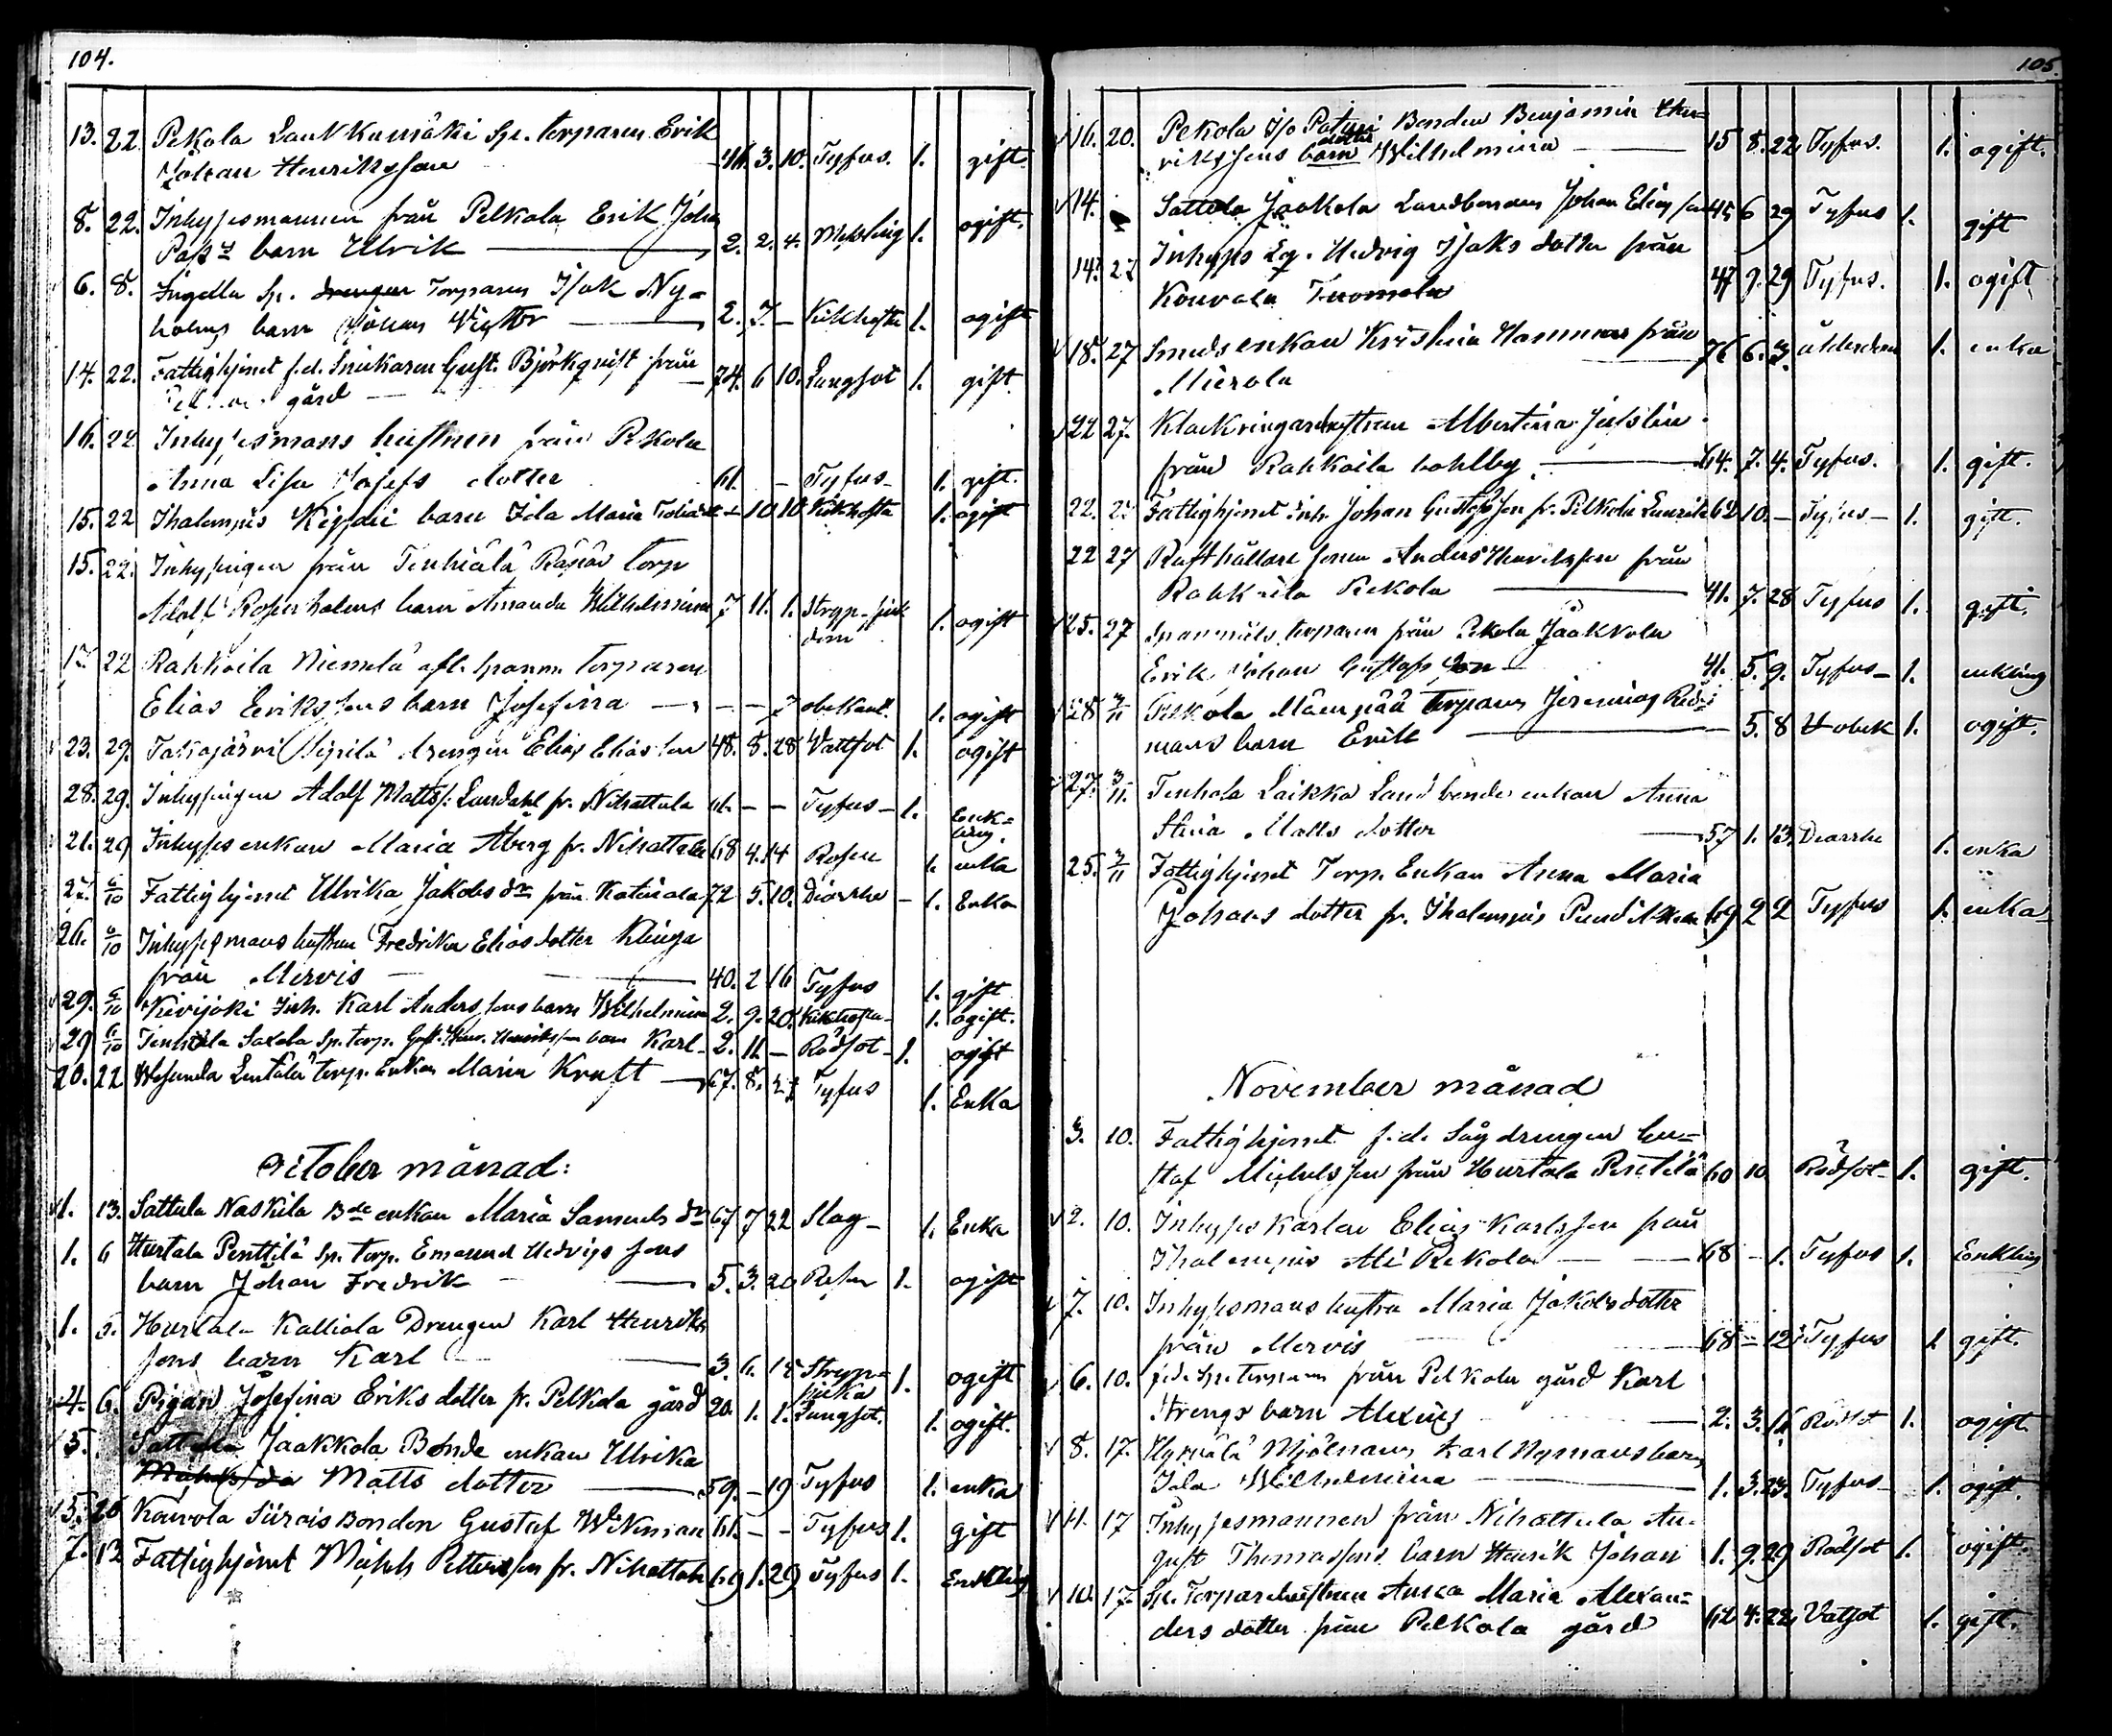 104.
13. 22. Pekola Laukkumäki Sp. torparen Erik
Johan Henriksson 3. 10. Tyfus. 1. gift.
8. 22. Inhysesmannen från Pelkola Erik Joh
barn Ulrik 2. 2. 4. Messling 1. ogift.
6. 8. Sp. drengen Torparen Isak Ny=
holms barn Johan Victor 2. 7. — Kikhosta 1. ogift
14. 22. Fattighjonet f.d. Snickaren Gust. Björkqvist från
gård 74. 6 10. Lungsot 1. gift.
16. 22 Inhysesmans hustrun från Pekola
Anna Lisa Josefs dotter 61. — Tyfus 1. gift.
15. 22 Ihalempis barn Ida Maria — 10 10 Kikhosta 1. ogift
15. 22. Inhysingen från Tenhiälä torp
Adolf Rosenholms barn Amanda Wilhelmina 7 11. 1. Stryp-sjuk
dom 1. ogift
22 Rahkoila Niemelä afl. spanm. torparen
Elias Erikssons barn Josefina — — 7 obekant. 1. ogift
23. 29. drengen Elias Eliasson 48. 8. 28 Vattsot 1. ogift
28. 29. Inhysingen Adolf Mattss: Lundahl fr. Nihattula 61. — — Tyfus — 1. Enk=
ling.
21. 29 Inhyses enkan Maria Åberg fr. Nihattula 68 4. 14 Rosen 1. enka
27. 6/10 Fattighjonet Ulrika Jakobs dr från Katinala 72 5. 10. Diarrhe — 1. Enka
26. 6/10 Inhysesmans hustrun Fredrika Elias dotter Klinga
från Mervis 40. 2 16 Tyfus 1. gift
29. 6/10 Kivijoki Inh. Karl Anderssons barn Wilhelmina 2. 9. 20. Kikhosta 1. ogift.
29 6/10 Sp. torp. barn Karl 2. 11 — Rödsot 1. ogift
20. 22 Torp. Enkan Maria Kraft 67. 8. 27 Tyfus 1. Enka
October månad:
1. 13. Sattula Naskila Bde enkan Maria Samuels dr 67 7 22 Slag 1. Enka
1. 6 Hurtala Penttilä Sp. torp. Emanuel Hedvigs sons
barn Johan Fredrik 5. 3. 20 Rosen 1. ogift
1. 5. Hurtala Kalliola Drengen Karl Henriks
sons barn Karl 3. 6. Stryp=
sjuka 1. ogift
4. 6. Pigan Josefina Eriks dotter fr. Pelkola gård 20. 1. 1. Lungsot. 1. ogift.
5. Sattula Jaakkola Bonde enkan Ulrika
Matts dotter 59. — 19 Tyfus 1. enka
5. Bonden Gustaf Wikman 61. — — Tyfus 1. gift
7. 13 Fattighjonet Michel Pettersson fr. Nihattula 69 1. 29 Tyfus 1. Enkling
105.
16. 20. Pekola Iso Paturi Bonden Benjamin Hen=
rikssons barn dotter Wilhelmina 15 8. 22. Tyfus. 1. ogift.
14. Sattula Jaakola Landbonden Johan Eliasson 45 6 29 Tyfus 1. gift
14. 27 Inhyses Eg. Hedvig Isaks dotter från
Kouvala Tuomela 47 9. 29 Tyfus. 1. ogift
18. 27 Smeds enkan Kristina Hammar från
Mierola 76 6. 3. ålderdom 1. enka
22 27. Klockringarehustrun Albertina Juslin
från Rahkoila bohlby 64. 7. 4. Tyfus. 1. gift.
22. 27 Fattighjonet inh. Johan Gustafsson fr. Pelkola 62 10. — Tyfus — 1. gift.
22 27 Rusthållare sonen Anders Henriksson från
Rahkoila Pekola 41. 7. 28 Tyfus 1. gift.
25. 27 Spanmåls torparen från Pekola Jaakkola
Erik Johan Gustafsson 41. 5. 9. Tyfus — 1. enkling
28. 3/11 Pelkola Mäenpää torparen Jeremias
mans barn Erik 5. 8 obek 1. ogift.
27. 3/11. Tenhola Laikka Landbonde enkan Anna
Stina Matts dotter 57 1. 13. Diarrhe 1. enka
25. 3/11 Fattighjonet Torp. Enkan Anna Maria
Johans dotter fr. Ihalempis 69 2 2 Tyfus 1. enka
November månad
3. 10. Fattighjonet f.d. Sågdrengen Gu=
staf Michelsson från Hurtala Penttilä 60 10. Rödsot 1. gift.
2. 10. Inhyses Karlen Elias Karlsson från
Ihalempis Ali Pekola 68 — 1. Tyfus 1. Enkling
7. 10. Inhysesmans hustru Maria Jakobsdotter
från Mervis 68 — 12 Tyfus 1 gift.
6. 10. f.d. Sp. torparen från Pelkola gård Karl
Strengs barn Alexius 2. 3. Rödsot 1. ogift
8. 17. Mjölnaren Karl Nymans barn
Ida Wilhelmina 1. 3. 23. Tyfus 1. ogift.
11. 17 Inhysesmannen från Nihattula Au=
gust Thomassons barn Henrik Johan 1. 9. 29 Rödsot 1. ogift.
10. 17. Sp. Torparehustrun Anna Maria Alexan=
ders dotter från Pelkola gård 62 4. 22. Vatsot 1. gift.